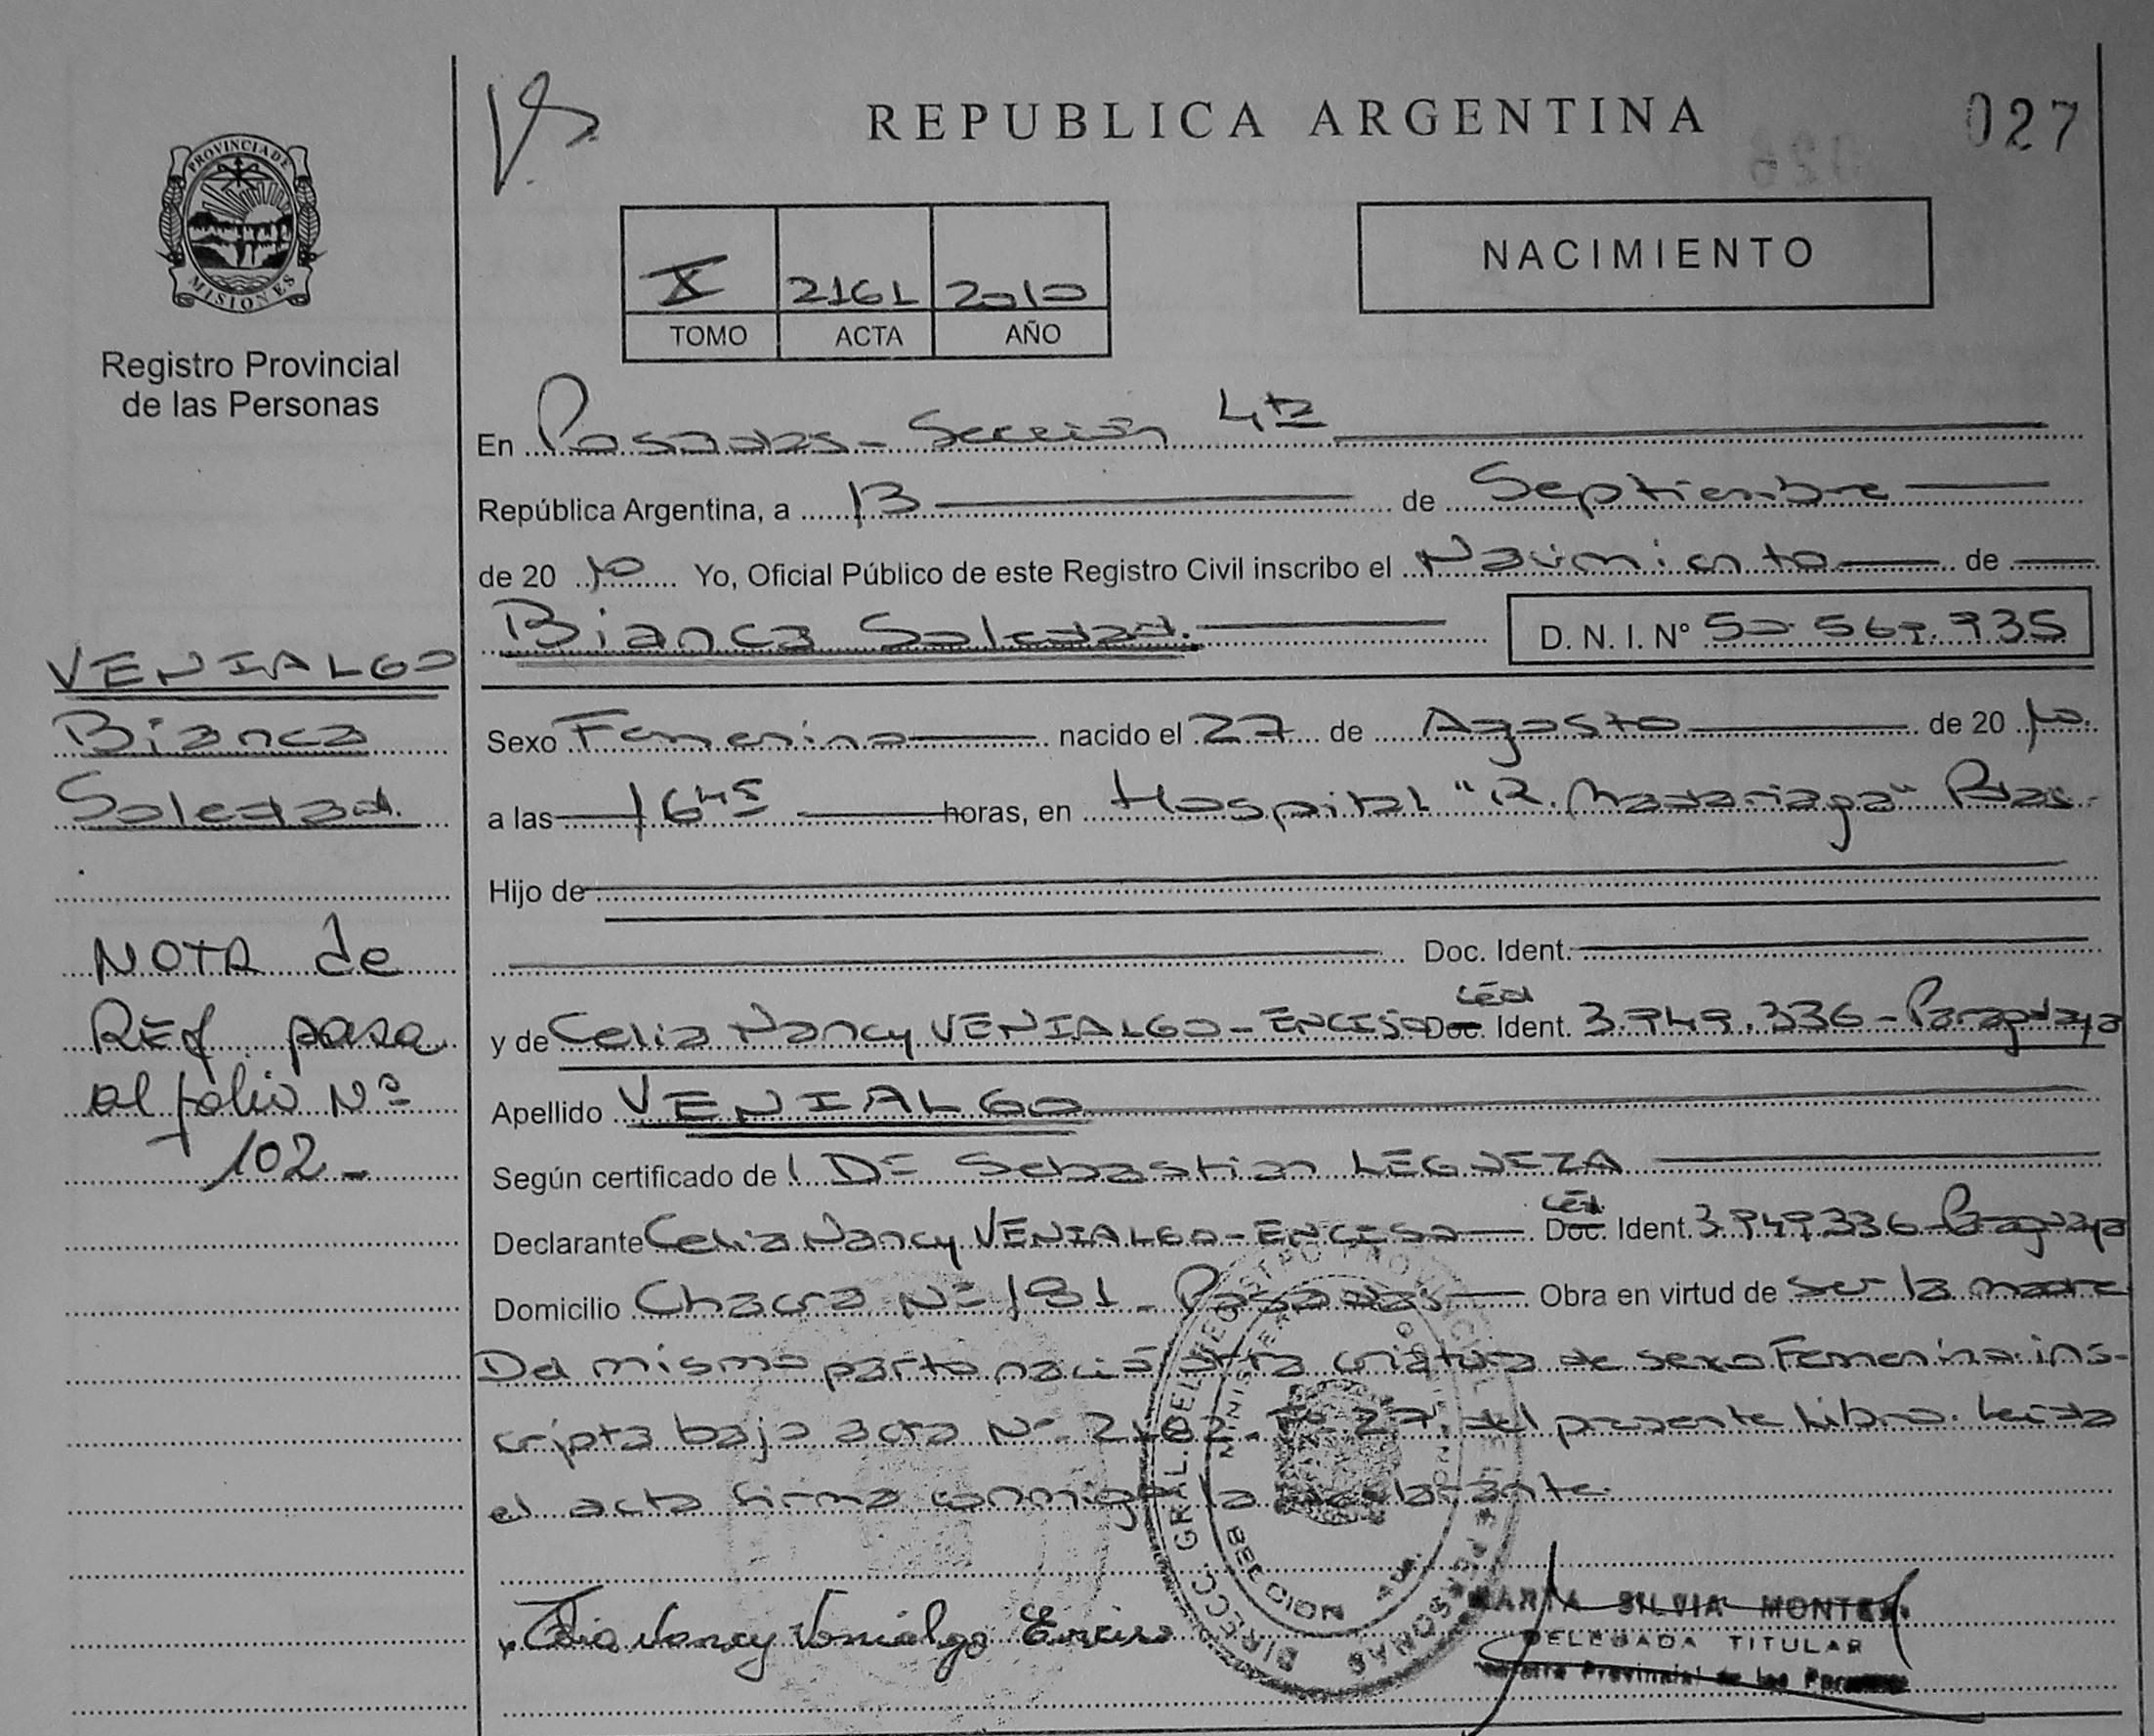 REPUBLICA ARGENTINA
027
PROVINCIA DE
MISIONES
Registro Provincial
de las Personas
X 2161 2010
TOMO ACTA AÑO
NACIMIENTO
En Posadas - Sección 4ta
República Argentina, a 13 de Septiembre
de 20 10 Yo, Oficial Público de este Registro Civil inscribo el Nacimiento de
Bianca Soledad. D. N. I. Nº
VENIALGO
Bianca
Soledad.
Sexo Femenino nacido el 27 de Agosto de 20 10.
a las 16 45 horas, en Hospital "R. Madariaga" Pdas.
Hijo de
Doc. Ident.
y de Celia Nancy VENIALGO - ENCISO Céd Doc. Ident. 3.949.336 - Paraguaya
Apellido VENIALGO
Según certificado de Sebastian LEGUEZA
Declarante Celia Nancy VENIALGO - ENCISO Céd. Doc. Ident. 3.949.336 Paraguaya
Domicilio Chacra Nº 181 - Posadas Obra en virtud de ser la madre
Del mismo parto nació otra criatura de sexo Femenino ins-
cripta bajo acta Nº 2162 - Fº 27, del presente Libro. Leida
el acta firma conmigo la declarante.
NOTA de
REf. pasa
al folio Nº
102 -
Celia Nancy Venialgo Enciso
MARTA SILVIA MONTES
DELEGADA TITULAR
Registro Provincial de las Personas